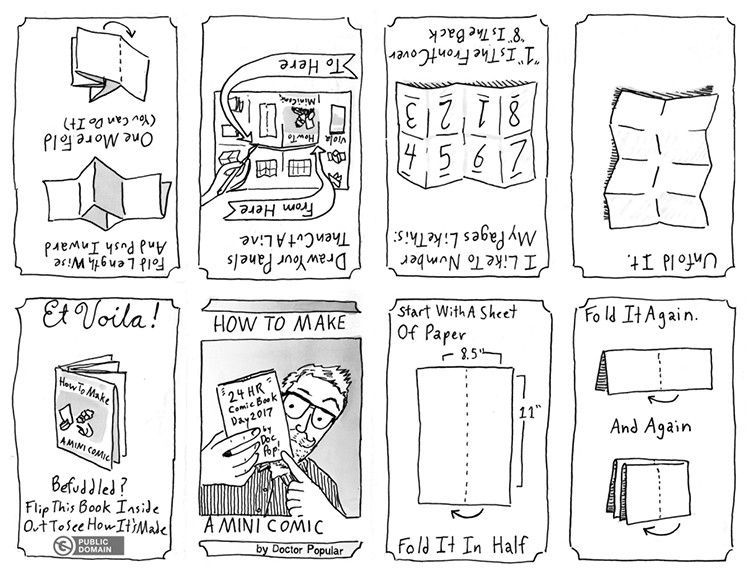 HOW TO MAKE
24 HR
Comic Book
Day 2017
by
Doc
Pop!
A MINI COMIC
by Doctor Popular
Start With A Sheet
Of Paper
8.5"
11"
Fold It In Half
Fold It Again.
And Again
Unfold It.
I Like To Number
My Pages Like This:
7 6 5 4
8 1 2 3
"1" Is The Front Cover
"8" Is The Back
Draw Your Panels
Then Cut A Line
From Here
Viola
How To
Mini Comic
To Here
Fold Length Wise
And Push Inward
One More Fold
(You Can Do It)
Et Voila!
How To Make
A MINI COMIC
Befuddled?
Flip This Book Inside
Out To See How It's Made
PUBLIC
DOMAIN